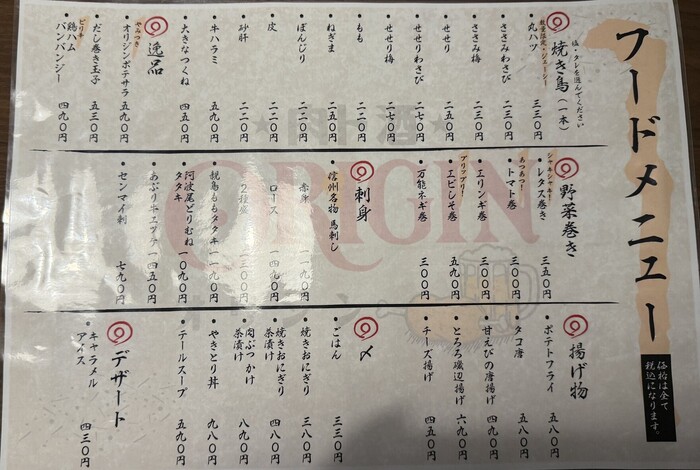 フードメニュー
価格は全て
税込になります。
焼き鳥(一本)
塩・タレを選んでください
数量限定・ジューシー
・丸ハツ 三三〇円
・ささみわさび 二三〇円
・ささみ梅 二三〇円
・せせり 二五〇円
・せせりわさび 二七〇円
・せせり梅 二七〇円
・もも 二二〇円
・ねぎま 二五〇円
・ぼんじり 二二〇円
・皮 二二〇円
・砂肝 二二〇円
・牛ハラミ 五九〇円
・大きなつくね 四五〇円
逸品
やみつき
・オリジンポテサラ 五九〇円
・だし巻き玉子 五三〇円
ピリ辛!
・鶏ハム
バンバンジー 四九〇円
野菜巻き
シャキシャキ!
・レタス巻き 三五〇円
あつあつ!
・トマト巻 三〇〇円
・エリンギ巻 三〇〇円
プリップリ!
・エビしそ巻 五九〇円
・万能ネギ巻 三〇〇円
刺身
・信州名物 馬刺し
赤身 一一九〇円
ロース 一四九〇円
2種盛
・親鳥ももタタキ 一一九〇円
・阿波尾どりむね
タタキ 一〇九〇円
・あぶり牛エンガワ 一四五〇円
・センマイ刺 七九〇円
揚げ物
・ポテトフライ 五八〇円
・タコ唐 五八〇円
・甘えびの唐揚げ 四九〇円
・とろろ磯辺揚げ 六九〇円
・チーズ揚げ 四五〇円
〆
・ごはん 三三〇円
・焼きおにぎり 三八〇円
・焼きおにぎり
茶漬け 四八〇円
・肉ぶっかけ
茶漬け 八九〇円
・やきとり丼 九八〇円
・テールスープ 五九〇円
デザート
・キャラメル
アイス 四三〇円
ORIGIN